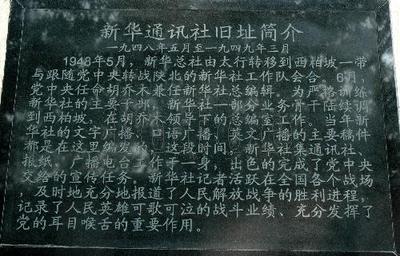 新华通讯社旧址简介
一九四八年五月至一九四九年三月
1948年5月，新华总社由太行转移到西柏坡一带
与跟随党中央转战陕北的新华社工作队会合。6月，
党中央任命胡乔木兼任新华社总编辑。为严格训练
新华社的主要干部，新华社一部分业务骨干陆续调
到西柏坡，在胡乔木领导下的总编室工作。当年新
华社的文字广播、口语广播、英文广播的主要稿件
都是在这里编发的。这段时间，新华社集通讯社、
报纸、广播电台工作于一身，出色的完成了党中央
交给的宣传任务。新华社记者活跃在全国各个战场
，及时地充分地报道了人民解放战争的胜利进程，
记录了人民英雄可歌可泣的战斗业绩、充分发挥了
党的耳目喉舌的重要作用。